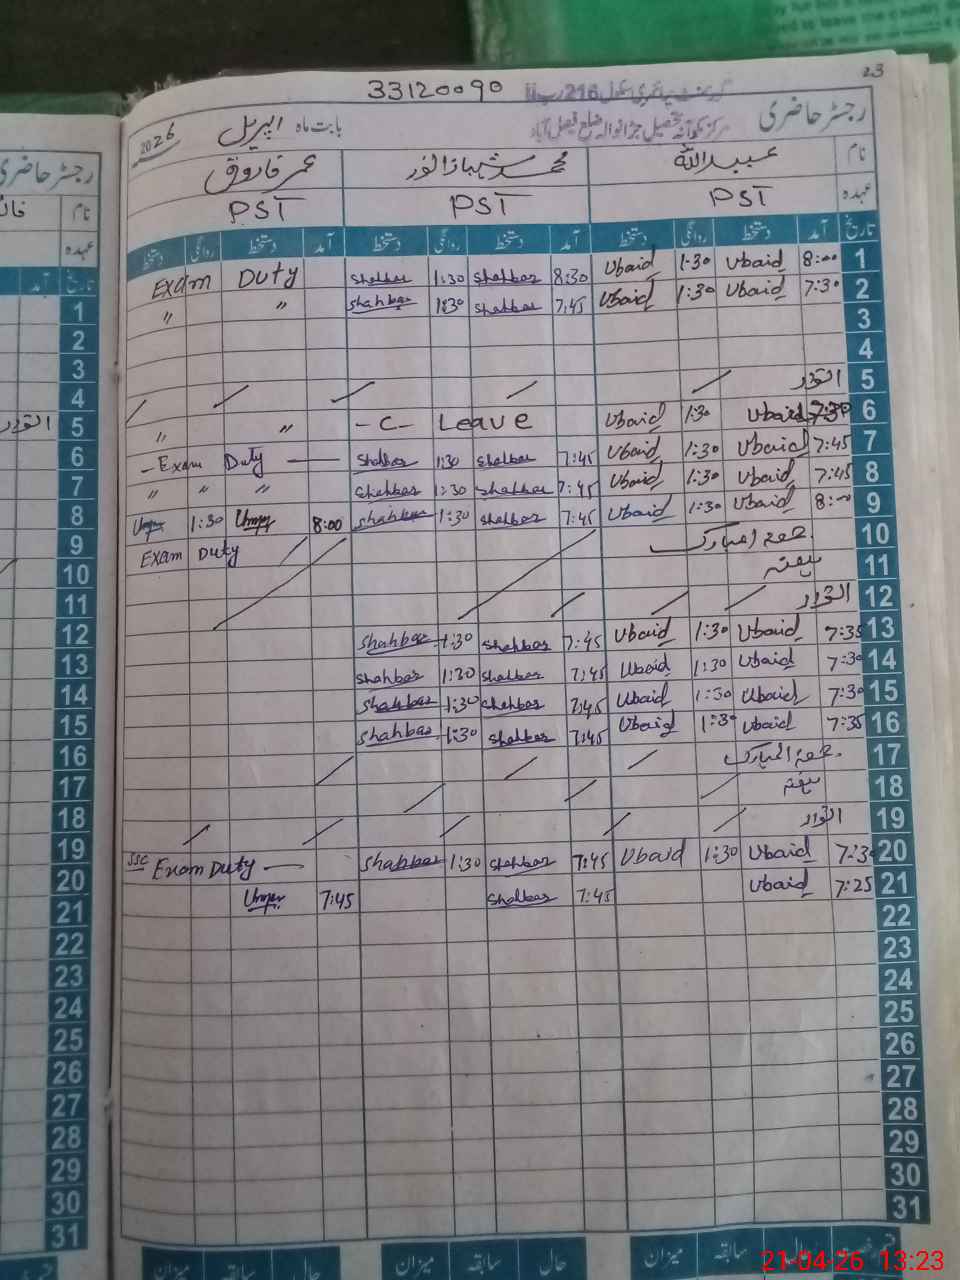 23
33120090
گورنمنٹ پرائمری سکول 216 رب II
مرکز کوآنہ تحصیل جڑانوالہ ضلع فیصل آباد
رجسٹر حاضری
بابت ماہ اپریل 2026
نام عبیداللہ محمد شہباز انور عمر فاروق
عہدہ PST PST PST
تاریخ آمد دستخط روانگی دستخط آمد دستخط روانگی دستخط آمد دستخط روانگی دستخط
1 8:00 Ubaid 1:30 Ubaid 8:30 Shahbaz 1:30 Shahbaz Exam Duty
2 7:30 Ubaid 1:30 Ubaid 7:45 Shahbaz 1:30 Shahbaz " "
3
4
5 اتوار
6 7:30 Ubaid 1:30 Ubaid -C- Leave " "
7 7:45 Ubaid 1:30 Ubaid 7:45 Shahbaz 1:30 Shahbaz - Exam Duty —
8 7:45 Ubaid 1:30 Ubaid 7:45 Shahbaz 1:30 Shahbaz " " "
9 8:00 Ubaid 1:30 Ubaid 7:45 Shahbaz 1:30 Shahbaz 8:00 Umer 1:30 Umer
10 جمعۃ المبارک Exam Duty
11 ہفتہ
12 اتوار
13 7:35 Ubaid 1:30 Ubaid 7:45 Shahbaz 1:30 Shahbaz
14 7:30 Ubaid 1:30 Ubaid 7:45 Shahbaz 1:30 Shahbaz
15 7:30 Ubaid 1:30 Ubaid 7:45 Shahbaz 1:30 Shahbaz
16 7:35 Ubaid 1:30 Ubaid 7:45 Shahbaz 1:30 Shahbaz
17 جمعۃ المبارک
18 ہفتہ
19 اتوار
20 7:30 Ubaid 1:30 Ubaid 7:45 Shahbaz 1:30 Shahbaz SSC Exam Duty —
21 7:25 Ubaid 7:45 Shahbaz 7:45 Umer
22
23
24
25
26
27
28
29
30
31
حال سابقہ میزان حال سابقہ میزان حال سابقہ میزان
رجسٹر حاضری
نام
عہدہ
تاریخ آمد
1
2
3
4
5 اتوار
6
7
8
9
10
11
12
13
14
15
16
17
18
19
20
21
22
23
24
25
26
27
28
29
30
31
21-04-26 13:23